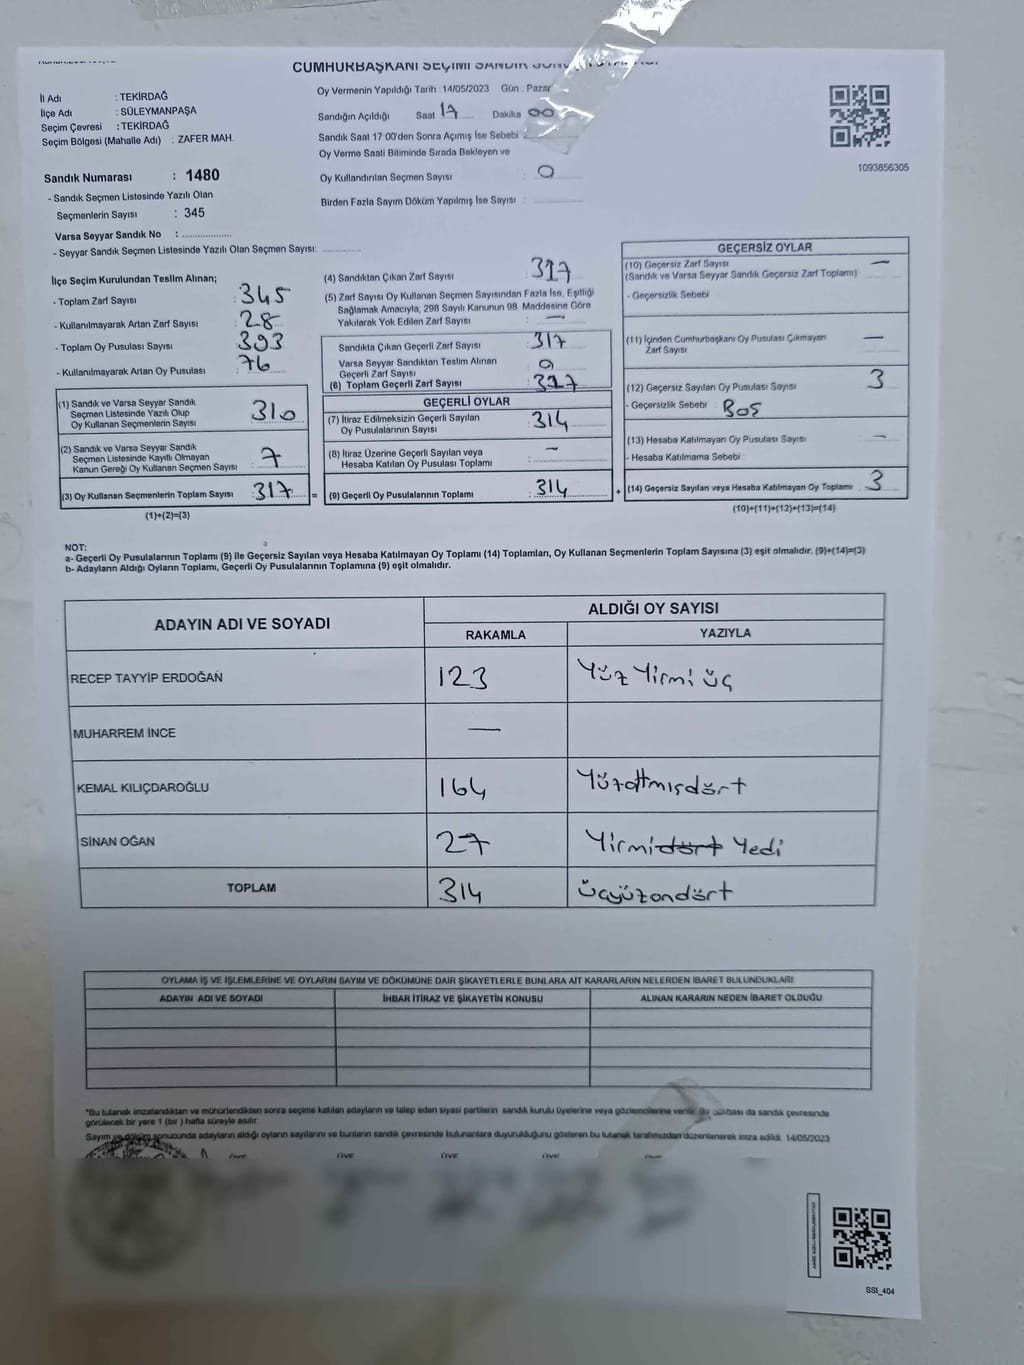 CUMHURBAŞKANI SEÇİMİ SANDIK
İl Adı : TEKİRDAĞ
İlçe Adı : SÜLEYMANPAŞA
Seçim Çevresi : TEKİRDAĞ
Seçim Bölgesi (Mahalle Adı) : ZAFER MAH.
Sandık Numarası : 1480
- Sandık Seçmen Listesinde Yazılı Olan
Seçmenlerin Sayısı : 345
Varsa Seyyar Sandık No :
- Seyyar Sandık Seçmen Listesinde Yazılı Olan Seçmen Sayısı:
Oy Vermenin Yapıldığı Tarih : 14/05/2023 Gün : Pazar
Sandığın Açıldığı Saat 17 Dakika 00
Sandık Saat 17:00'den Sonra Açımış İse Sebebi
Oy Verme Saati Bitiminde Sırada Bekleyen ve
Oy Kullandırılan Seçmen Sayısı : 0
Birden Fazla Sayım Döküm Yapılmış İse Sayısı :
1093856305
İlçe Seçim Kurulundan Teslim Alınan;
- Toplam Zarf Sayısı : 345
- Kullanılmayarak Artan Zarf Sayısı : 28
- Toplam Oy Pusulası Sayısı : 393
- Kullanılmayarak Artan Oy Pusulası : 76
(1) Sandık ve Varsa Seyyar Sandık
Seçmen Listesinde Yazılı Olup
Oy Kullanan Seçmenlerin Sayısı : 310
(2) Sandık ve Varsa Seyyar Sandık
Seçmen Listesinde Kayıtlı Olmayan
Kanun Gereği Oy Kullanan Seçmen Sayısı : 7
(3) Oy Kullanan Seçmenlerin Toplam Sayısı : 317 =
(1)+(2)=(3)
(4) Sandıktan Çıkan Zarf Sayısı : 317
(5) Zarf Sayısı Oy Kullanan Seçmen Sayısından Fazla İse, Eşitliği
Sağlamak Amacıyla, 298 Sayılı Kanunun 98. Maddesine Göre
Yakılarak Yok Edilen Zarf Sayısı : —
Sandıkta Çıkan Geçerli Zarf Sayısı : 317
Varsa Seyyar Sandıktan Teslim Alınan
Geçerli Zarf Sayısı : 0
(6) Toplam Geçerli Zarf Sayısı : 317
GEÇERLİ OYLAR
(7) İtiraz Edilmeksizin Geçerli Sayılan
Oy Pusulalarının Sayısı : 314
(8) İtiraz Üzerine Geçerli Sayılan veya
Hesaba Katılan Oy Pusulası Toplamı : —
(9) Geçerli Oy Pusulalarının Toplamı : 314 +
GEÇERSİZ OYLAR
(10) Geçersiz Zarf Sayısı —
(Sandık ve Varsa Seyyar Sandık Geçersiz Zarf Toplamı)
- Geçersizlik Sebebi
(11) İçinden Cumhurbaşkanı Oy Pusulası Çıkmayan —
Zarf Sayısı
(12) Geçersiz Sayılan Oy Pusulası Sayısı 3
- Geçersizlik Sebebi : Boş
(13) Hesaba Katılmayan Oy Pusulası Sayısı —
- Hesaba Katılmama Sebebi :
(14) Geçersiz Sayılan veya Hesaba Katılmayan Oy Toplamı : 3
(10)+(11)+(12)+(13)=(14)
NOT:
a- Geçerli Oy Pusulalarının Toplamı (9) ile Geçersiz Sayılan veya Hesaba Katılmayan Oy Toplamı (14) Toplamları, Oy Kullanan Seçmenlerin Toplam Sayısına (3) eşit olmalıdır. (9)+(14)=(3)
b- Adayların Aldığı Oyların Toplamı, Geçerli Oy Pusulalarının Toplamına (9) eşit olmalıdır.
ADAYIN ADI VE SOYADI
ALDIĞI OY SAYISI
RAKAMLA YAZIYLA
RECEP TAYYİP ERDOĞAN 123 Yüz Yirmi üç
MUHARREM İNCE —
KEMAL KILIÇDAROĞLU 164 Yüzatmışdört
SİNAN OĞAN 27 Yirmidört Yedi
TOPLAM 314 üçyüzondört
OYLAMA İŞ VE İŞLEMLERİNE VE OYLARIN SAYIM VE DÖKÜMÜNE DAİR ŞİKAYETLERLE BUNLARA AİT KARARLARIN NELERDEN İBARET BULUNDUKLARI
ADAYIN ADI VE SOYADI İHBAR İTİRAZ VE ŞİKAYETİN KONUSU ALINAN KARARIN NEDEN İBARET OLDUĞU
*Bu tutanak imzalandıktan ve mühürlendikten sonra seçime katılan adayların ve talep eden siyasi partilerin sandık kurulu üyelerine veya gözlemcilerine verilir. Bu da sandık çevresinde
görülecek bir yere 1 (bir) hafta süreyle asılır.
Sayım ve döküm sonucunda adayların aldığı oyların sayılarını ve bunların sandık çevresinde bulunanlara duyurulduğunu gösteren bu tutanak tarafımızdan düzenlenerek imza edildi. 14/05/2023
ÜYE ÜYE ÜYE ÜYE
SSI_404